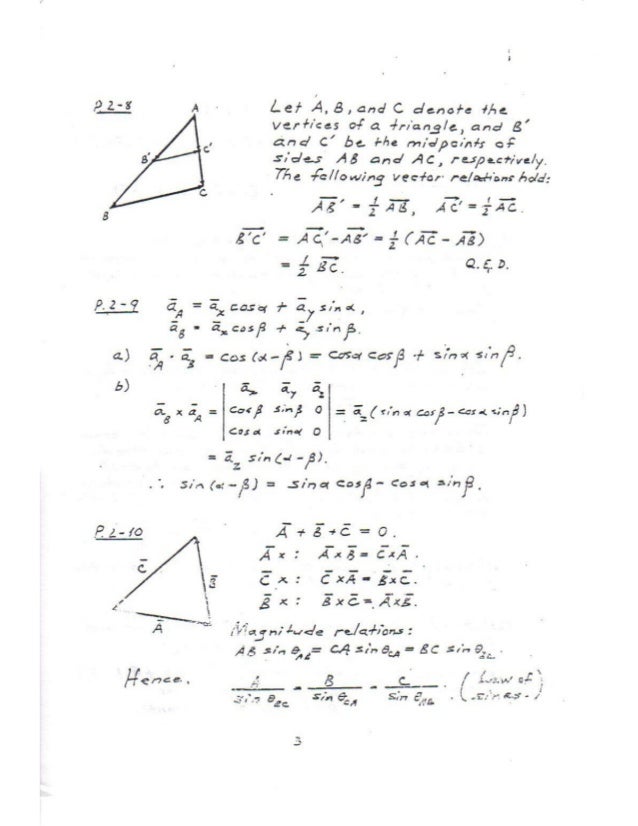 P.2-8
A
B'
C'
C
B
Let A, B, and C denote the
vertices of a triangle, and B'
and C' be the midpoints of
sides AB and AC, respectively.
The following vector relations hold:
A⃗B⃗' = ½ A⃗B⃗, A⃗C⃗' = ½ A⃗C⃗.
B⃗'C⃗' = A⃗C⃗' - A⃗B⃗' = ½ (A⃗C⃗ - A⃗B⃗)
= ½ B⃗C⃗. Q.E.D.
P.2-9 ā_A = ā_x cosα + ā_y sinα,
ā_B = ā_x cosβ + ā_y sinβ.
a) ā_A · ā_B = cos (α-β) = cosα cosβ + sinα sinβ.
b)
ā_B × ā_A = | ā_x ā_y ā_z |
| cosβ sinβ 0 | = ā_z (sinα cosβ - cosα sinβ)
| cosα sinα 0 |
= ā_z sin (α-β).
∴ sin (α-β) = sinα cosβ - cosα sinβ.
P.2-10
C̄
B̄
Ā
Ā + B̄ + C̄ = 0.
Ā × : Ā×B̄ = C̄×Ā.
C̄ × : C̄×Ā = B̄×C̄.
B̄ × : B̄×C̄ = Ā×B̄.
Magnitude relations:
AB sin θ_AB = CA sin θ_CA = BC sin θ_BC.
Hence, A/sin θ_BC = B/sin θ_CA = C/sin θ_AB. (Law of sines.)
3